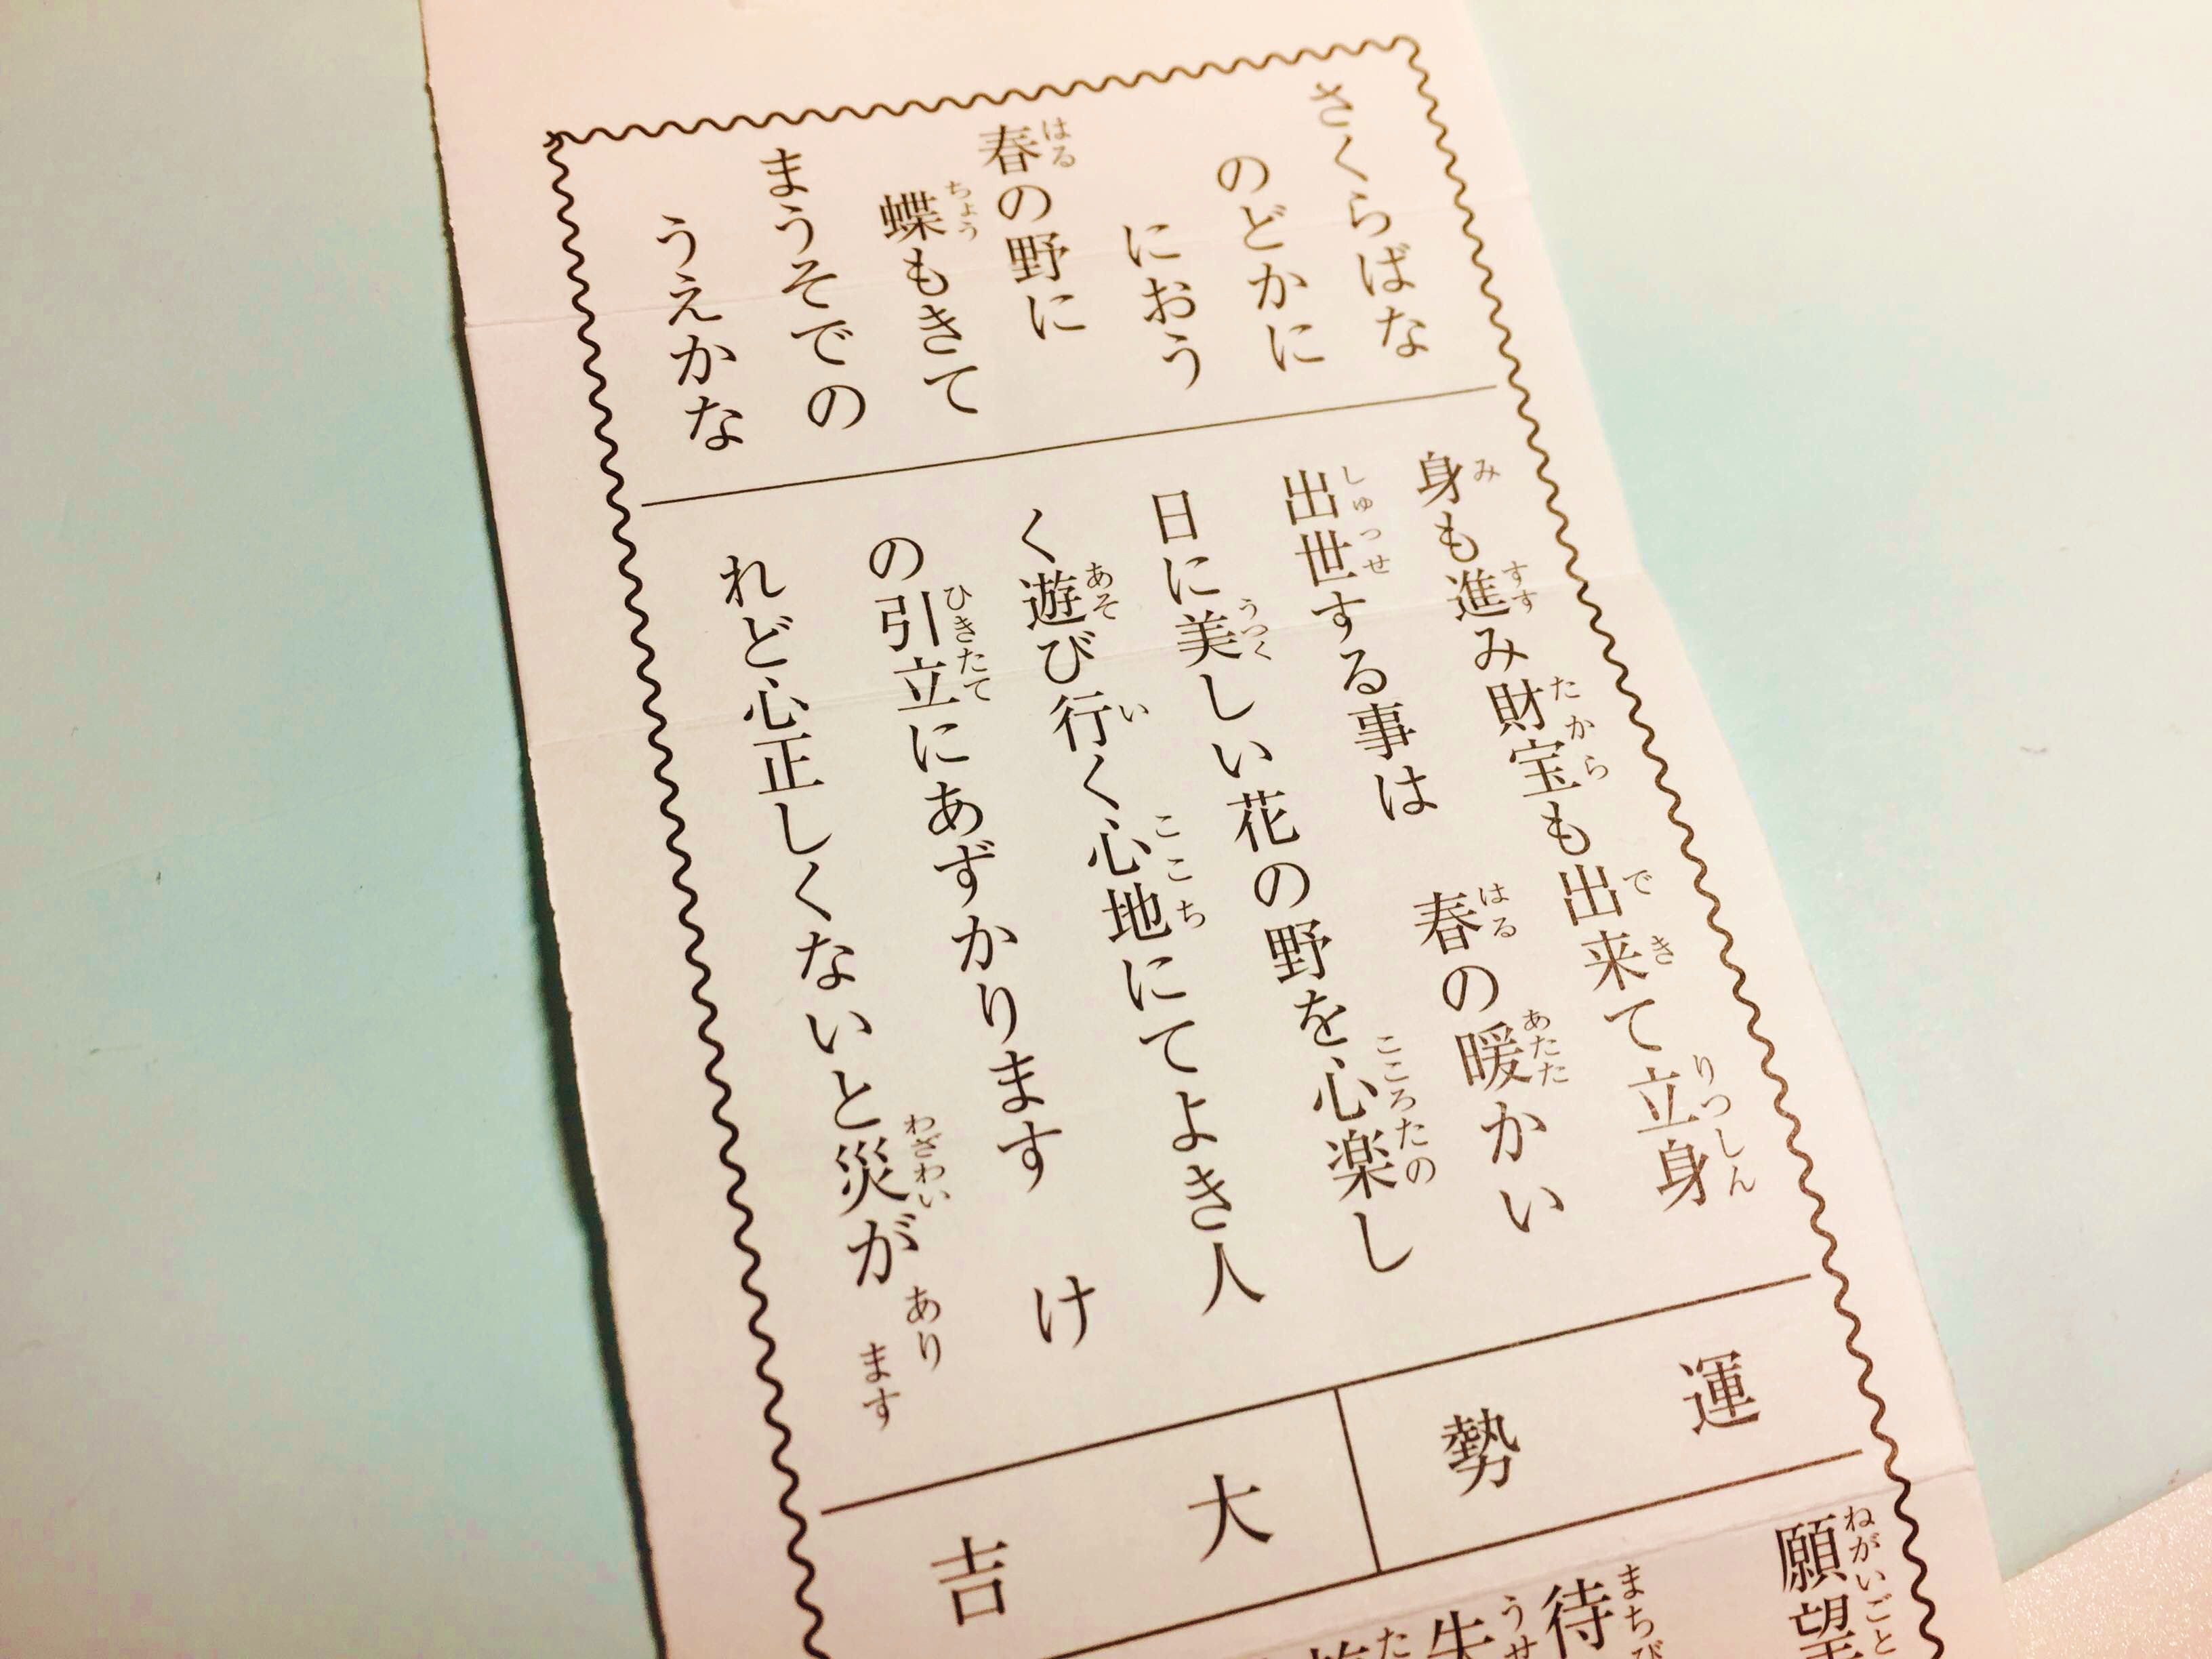 さくらばな
のどかに
におう
春の野に
蝶もきて
まうそでの
うえかな
身も進み財宝も出来て立身
出世する事は　春の暖かい
日に美しい花の野を心楽し
く遊び行く心地にてよき人
の引立にあずかります　け
れど心正しくないと災があります
運勢
大吉
願望
待